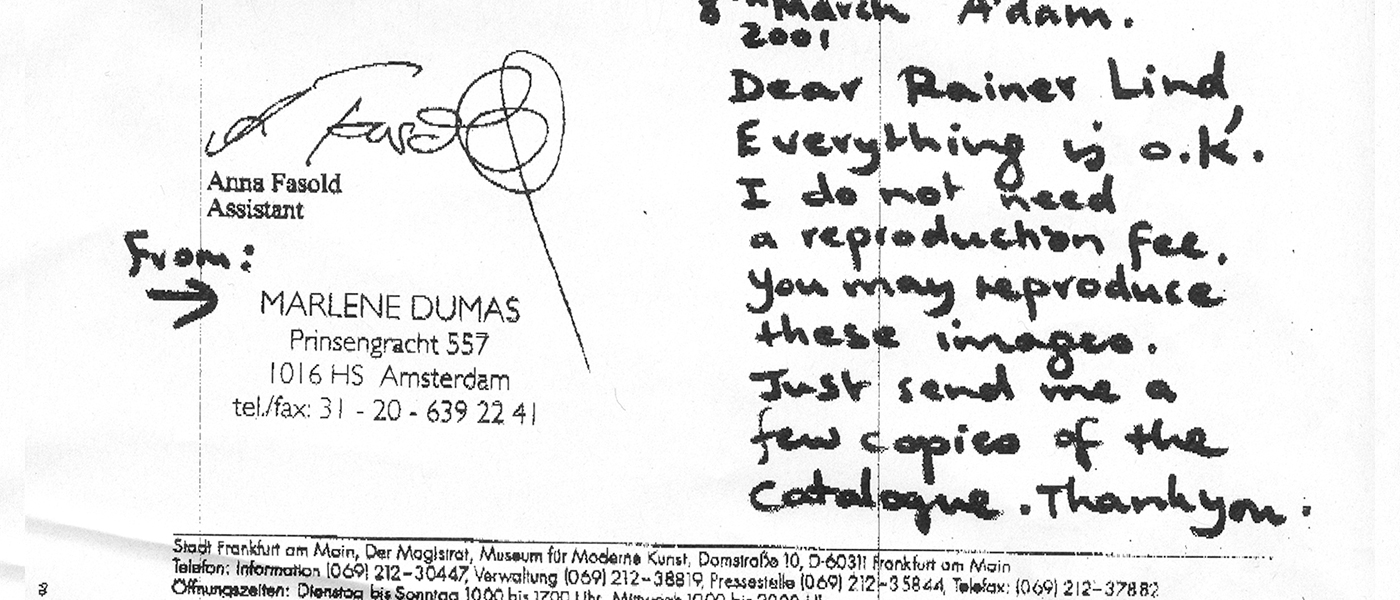 8th March A'dam.
2001
Dear Rainer Lind,
Everything is o.k.
I do not need
a reproduction fee.
You may reproduce
these images.
Just send me a
few copies of the
catalogue. Thank you.
Anna Fasold
Assistant
From:
MARLENE DUMAS
Prinsengracht 557
1016 HS Amsterdam
tel./fax: 31 - 20 - 639 22 41
Stadt Frankfurt am Main, Der Magistrat, Museum für Moderne Kunst, Domstraße 10, D-60311 Frankfurt am Main
Telefon: Information (069) 212-30447, Verwaltung (069) 212-38819, Pressestelle (069) 212-35844, Telefax: (069) 212-37882
Öffnungszeiten: Dienstag bis Sonntag 10.00 bis 17.00 Uhr, Mittwoch 10.00 bis 20.00 Uhr